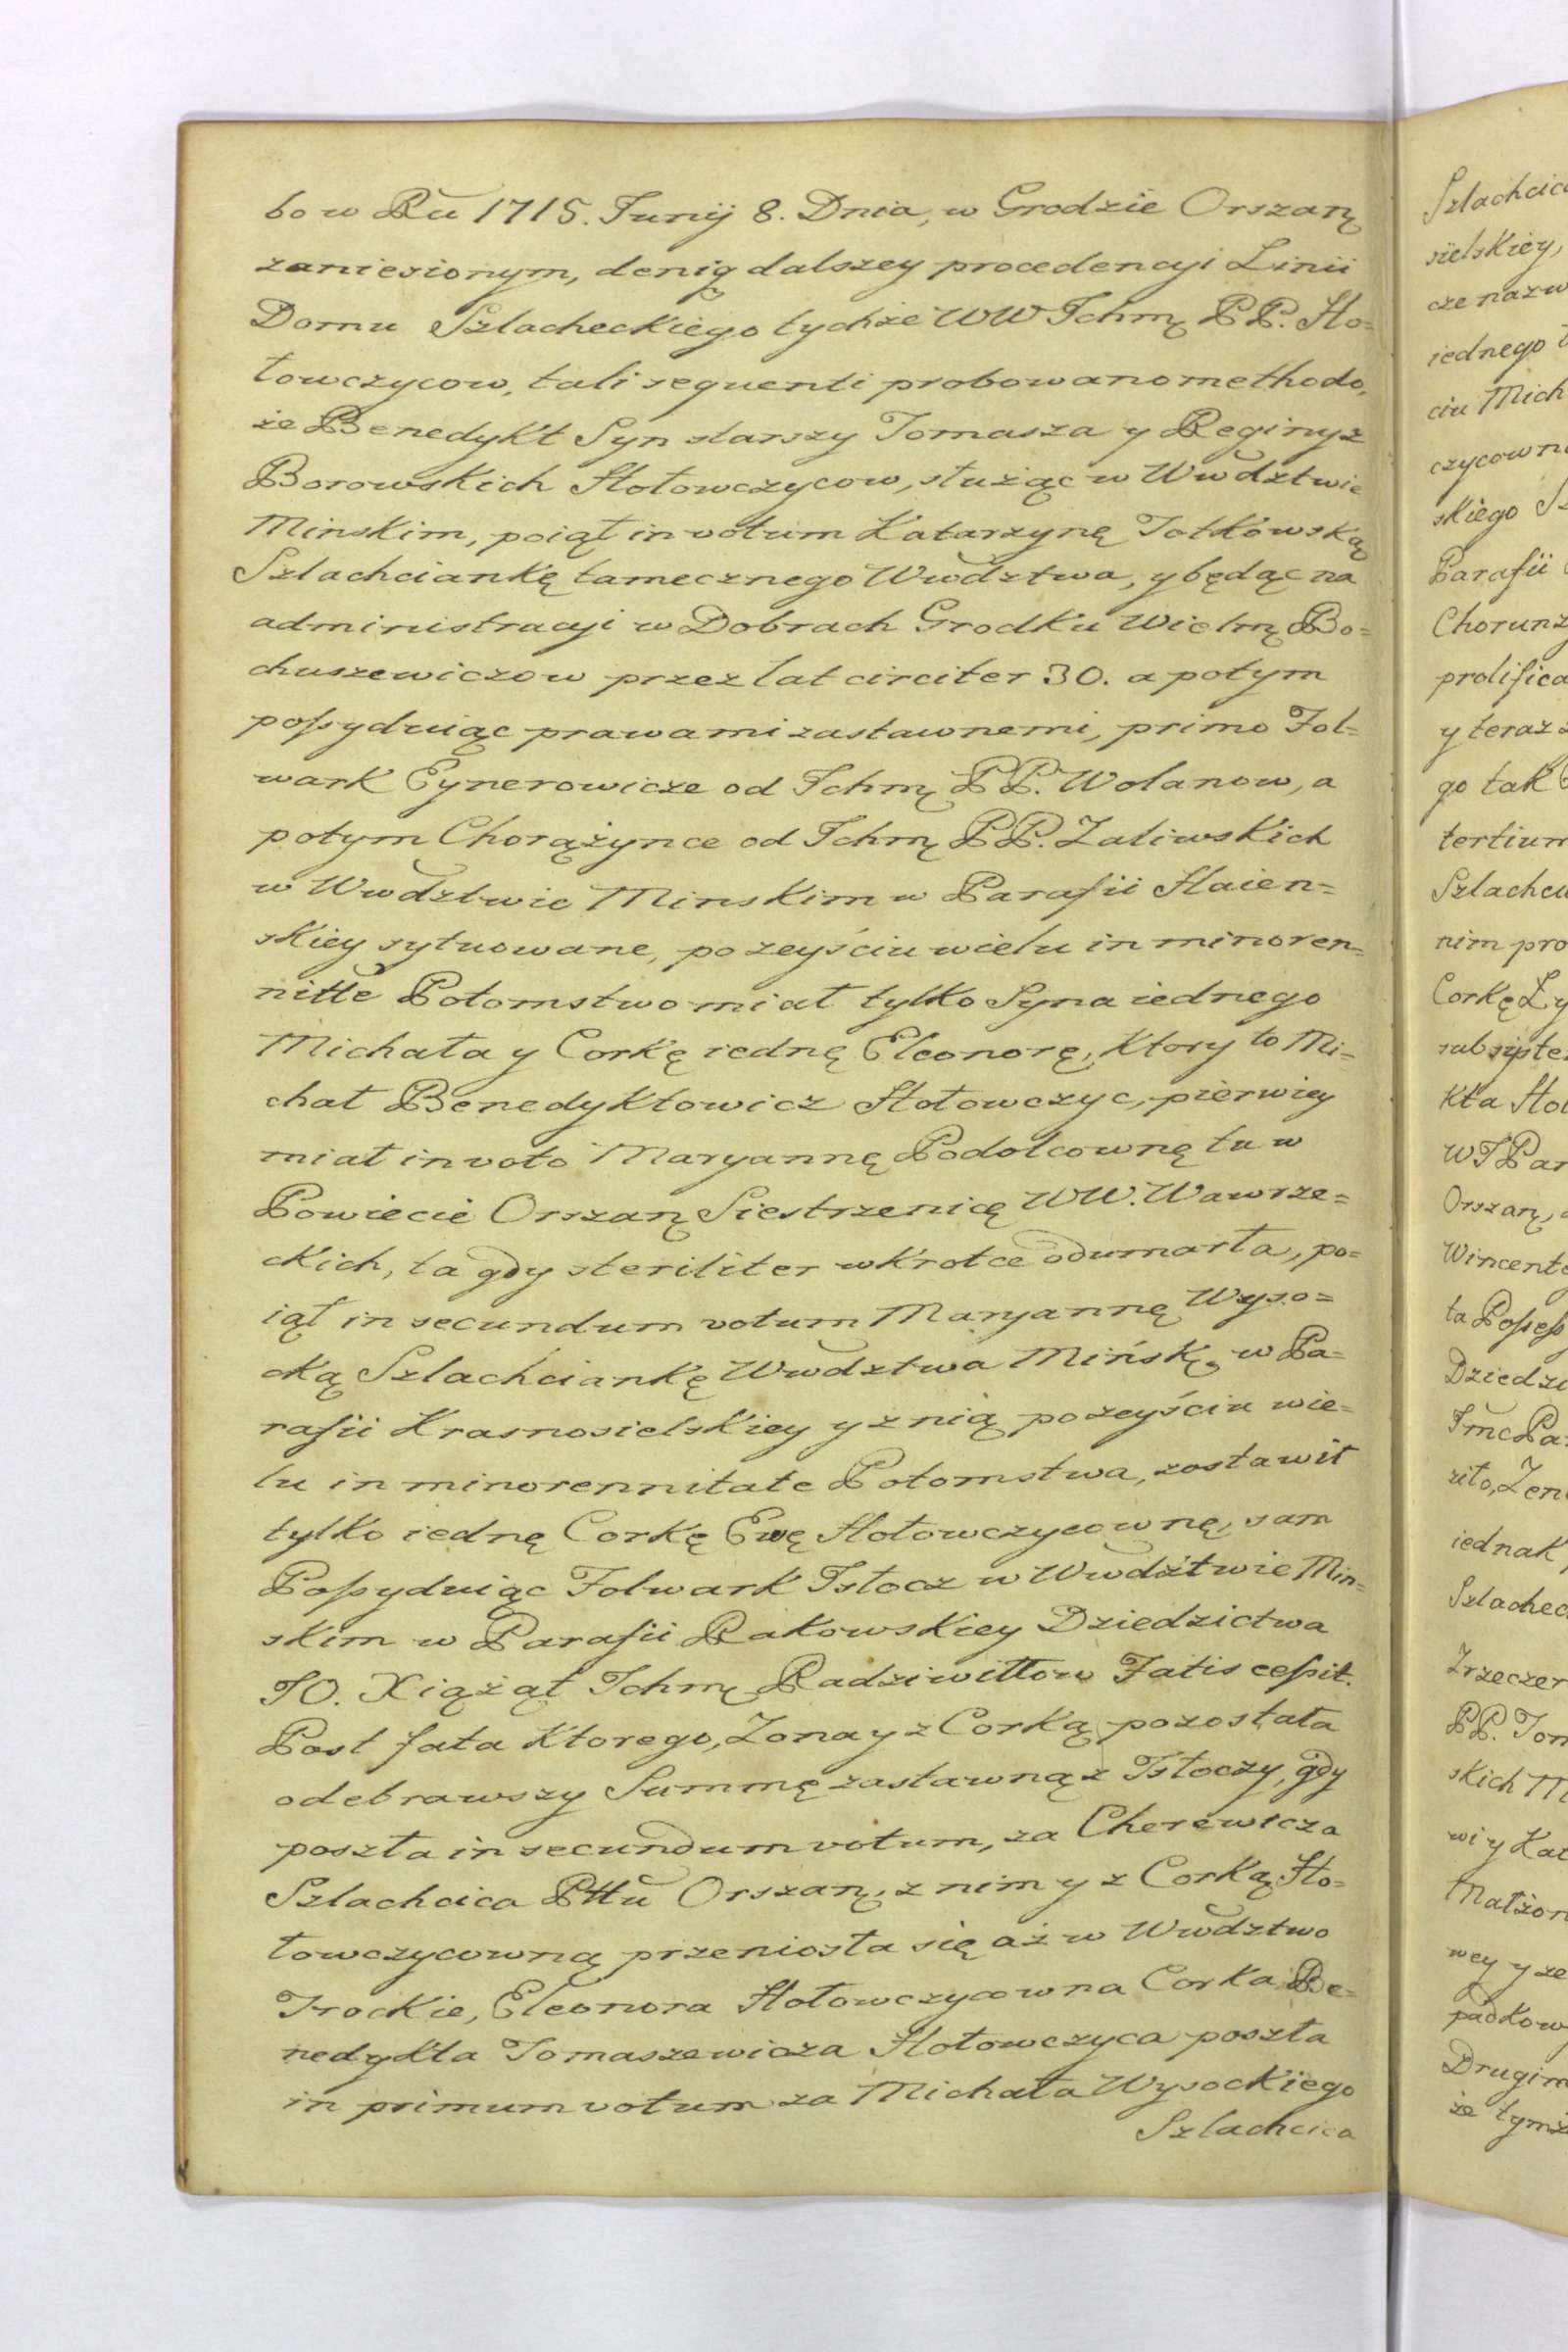 bow Ru 1715. Junij 8. Dnia, w Grodzie Orszań
zaniesionym, denią dalszey procedencyi Linii
Domu Szlacheckiego tychże WW Ichmę PP. Ho=
łowczycow, tali sequenti probowano methodo,
że Benedykt Syn starszy Tomasza y Reginy z
Borowskich Hołowczycow, służąc w Wwdztwie
Minskim, poiął in votum Katarzynę Tołkowską
Szlachciankę tamecznego Wwdztwa, y będąc na
administracyi w Dobrach Grodku Wielmę Bo=
chuszewiczow przez lat circiter 30. a potym
possyduiąc prawami zastawnemi, primo Fol=
wark Eynerowicze od Ichmę PP. Wolanow, a
potym Chorążynce od Ichmę PP. Zaliwskich
w Wwdztwie Minskim w Parafii Haien=
skiey sytuowane, po zeyściu wielu in minoren=
nitte Potomstwo miał tylko Syna iednego
Michała y Corkę iednę Eleonorę, Ktory to Mi=
chał Benedyktowicz Hołowczyc, pierwiey
miał in voto Maryannę Podolcownę tu w
Powiecie Orszań Siestrzenicę WW. Wawrze=
ckich, ta gdy steriliter wkrotce odumarła, po=
iął in secundum votum Maryannę Wyso=
cką Szlachciankę Wwdztwa Mińskę w Pa=
rafii Krasnosielskiey y z nią po zeyściu wie=
lu in minorennitate Potomstwa, zostawił
tylko iednę Corkę Ewę Hołowczycownę, sam
Possyduiąc Folwark Isłocz w Wwdztwie Min=
skim w Parafii Rakowskiey Dziedzictwa
JO. Xiążąt Ichmę Radziwiłłow Fatis cessit.
Post fata Ktorego, Zona y z Corką pozostała
odebrawszy Summę zastawną z Isłoczy, gdy
poszła in secundum votum, za Cherewicza
Szlachcica Pttu Orszań, z nim y z Corką Ho=
łowczycowną przeniosła się aż w Wwdztwo
Trockie, Eleonora Hołowczycowna Corka Be=
nedykta Tomaszewicza Hołowczyca poszła
in primum votum za Michała Wysockiego
Szlachcica
Szlachcic
sielskiey,
cze nazw
iednego
ciu Mich
czycown
skiego
Parafii
Chorunz
prolifica
y teraz
go tak
tertium
Szlachci
nim pro
Corkę Zy
subsiste
kta Hoł
WJPan
Orszań,
Wincent
ta Possess
Dziedzi
JmcPa
zito, Zen
iednak
Szlachec
Zrzeczen
PP. Tom
skich M
wi y Kat
Małżon
wey y ze
padkow
Drugim
że tymż